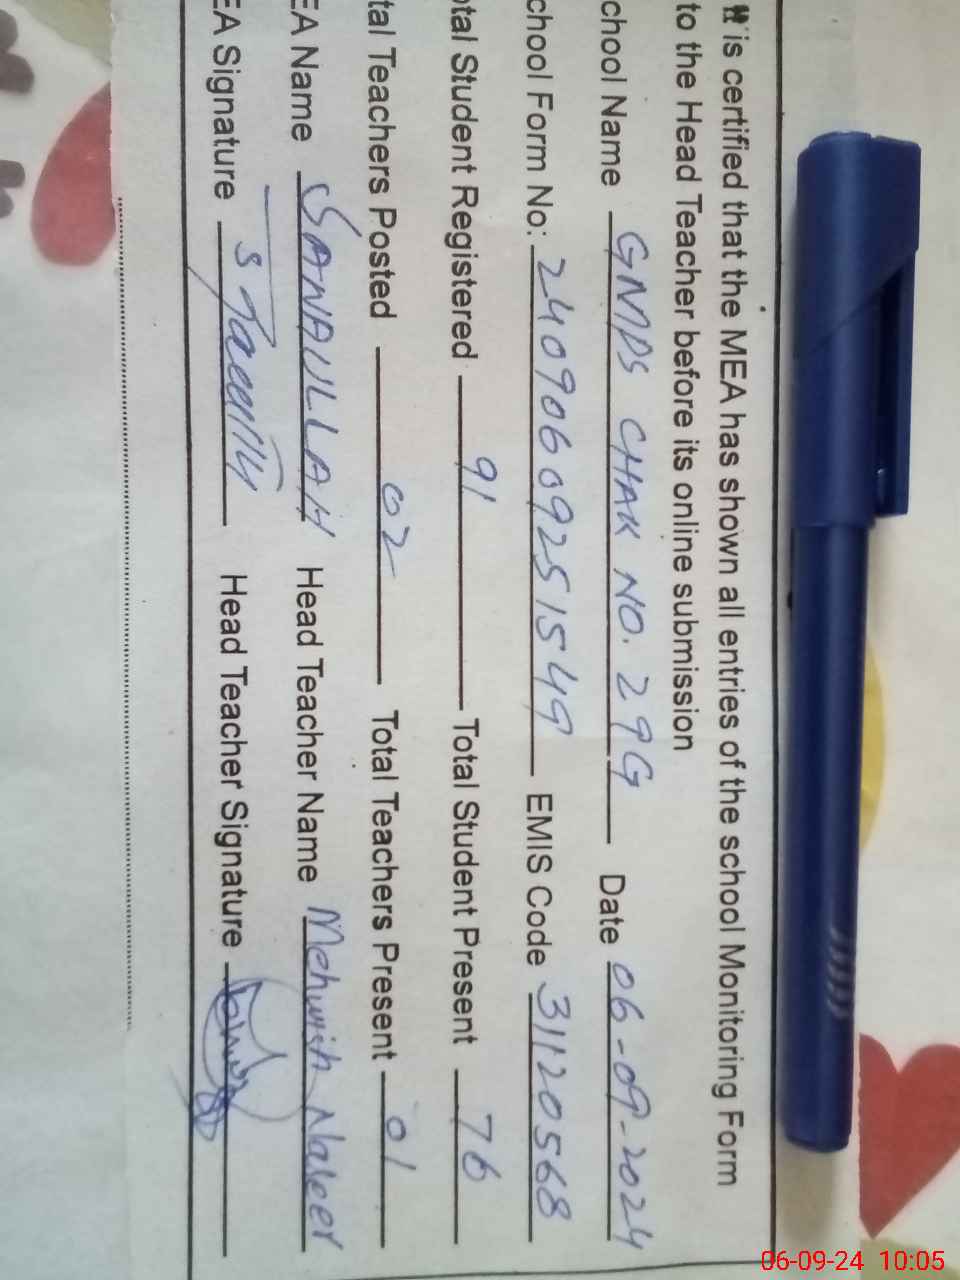 It is certified that the MEA has shown all entries of the school Monitoring Form
to the Head Teacher before its online submission
chool Name GMPS CHAK NO. 29G Date 06-09-2024
chool Form No: 2409060925 1549 EMIS Code 31120568
otal Student Registered 91 Total Student Present 76
tal Teachers Posted 02 Total Teachers Present 01
EA Name SANAULLAH Head Teacher Name Mehwish Naseer
EA Signature Head Teacher Signature
06-09-24 10:05